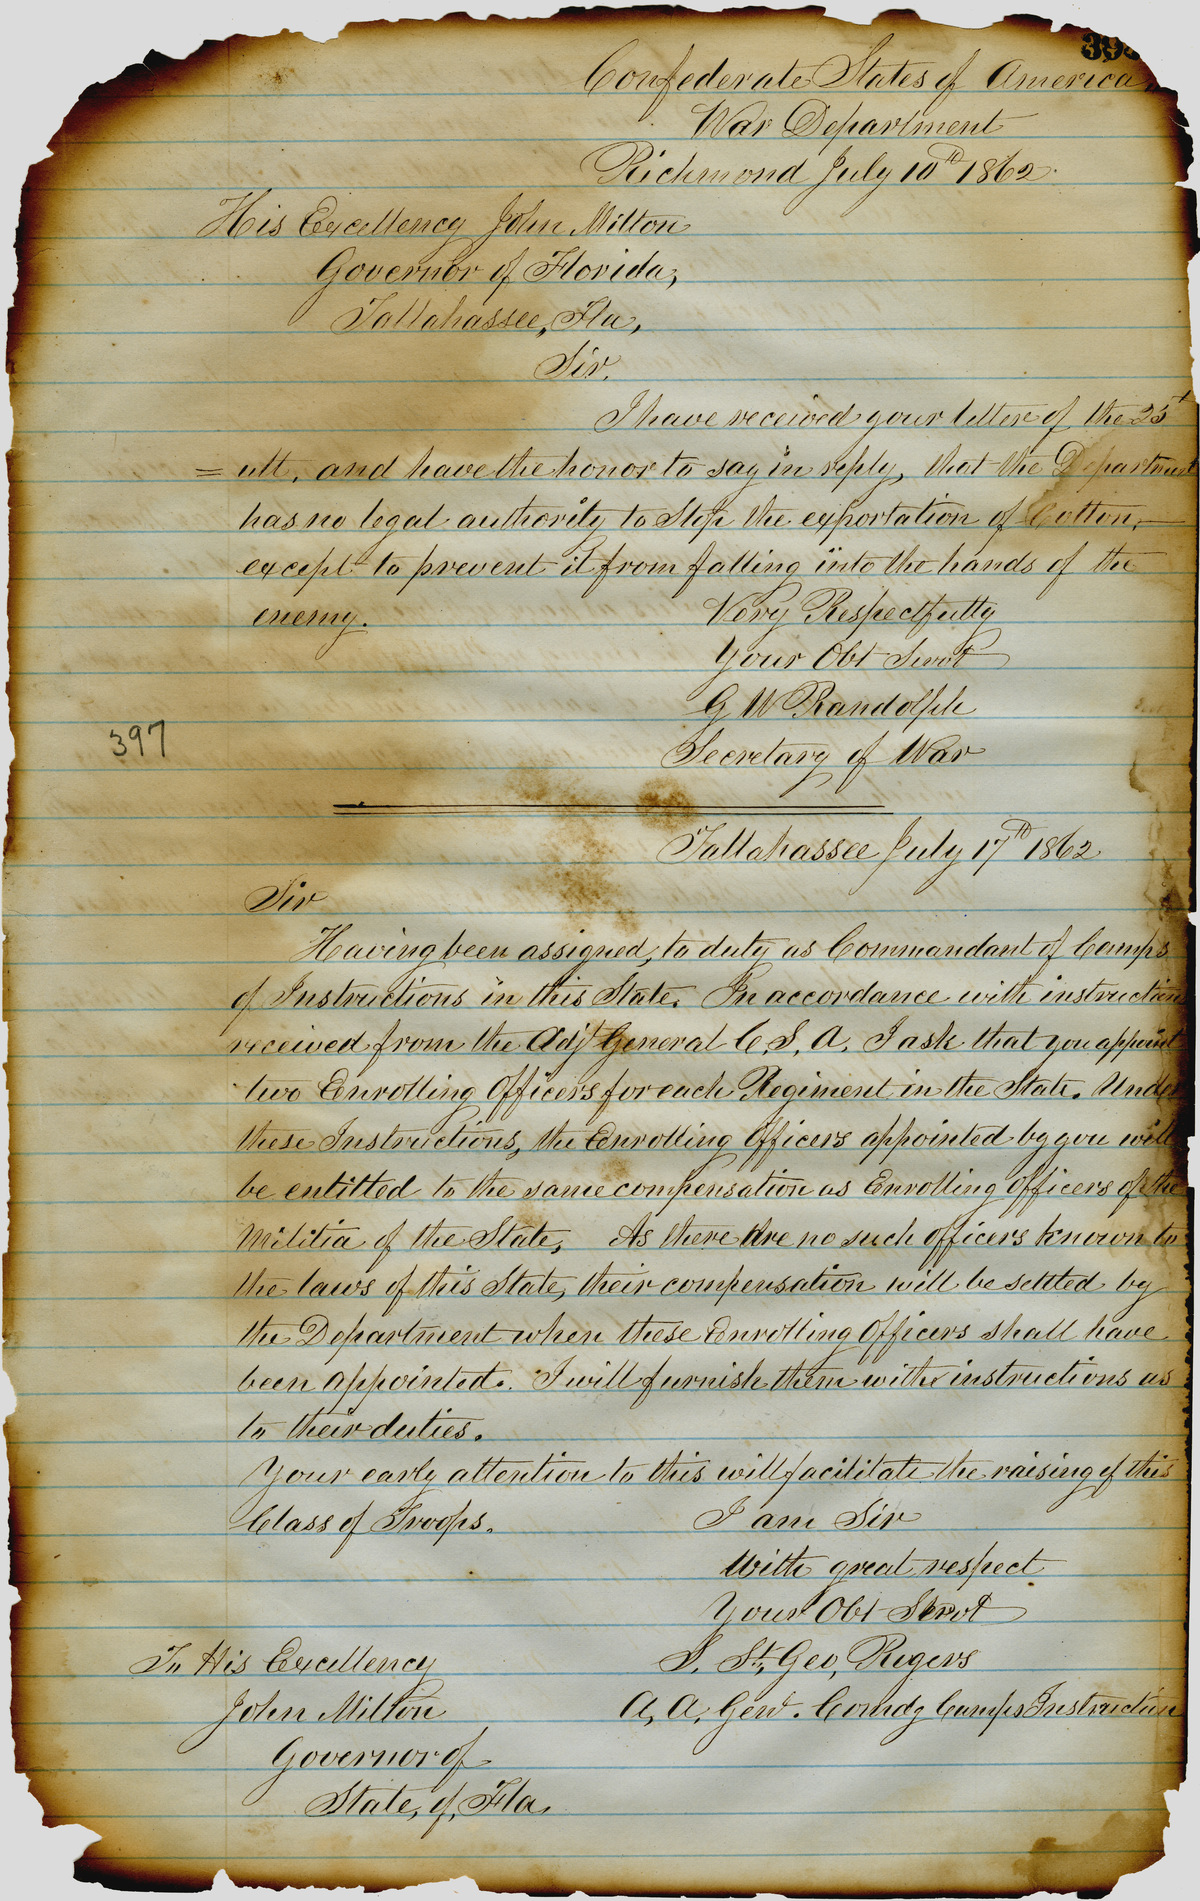 Confederate States of America
War Department
Richmond July 10th 1862.
His Excellency John Milton
Governor of Florida,
Tallahassee, Fla,
Sir.
I have received your letter of the
= ult. and have the honor to say in reply, that the Department
has no legal authority to Stop the exportation of Cotton,
except to prevent it from falling into the hands of the
enemy.
Very Respectfully
Your Obt Servt
G W Randolph
397
Secretary of War
Tallahassee July 17th 1862
Sir
Having been assigned, to duty as Commandant of Camps
of Instructions in this State. In accordance with instruction
received from the Adjt General C. S. A. I ask that you appoint
two Enrolling Officers for each Regiment in the State. Under
these Instructions, the Enrolling Officers appointed by you will
be entitled to the same compensation as Enrolling Officers of the
Militia of the State, As there Are no such Officers known to
the laws of this State, their compensation will be settled by
the Department when these Enrolling Officers shall have
been appointed. I will furnish them with instructions as
to their duties.
Your early attention to this will facilitate the raising of this
Class of Troops.
I am Sir
With great respect
Your Obt Servt
To His Excellency
S. St. Geo, Rogers
John Milton
A, A, Genl. Comdg Camps Instruction
Governor of
State, of, Fla,